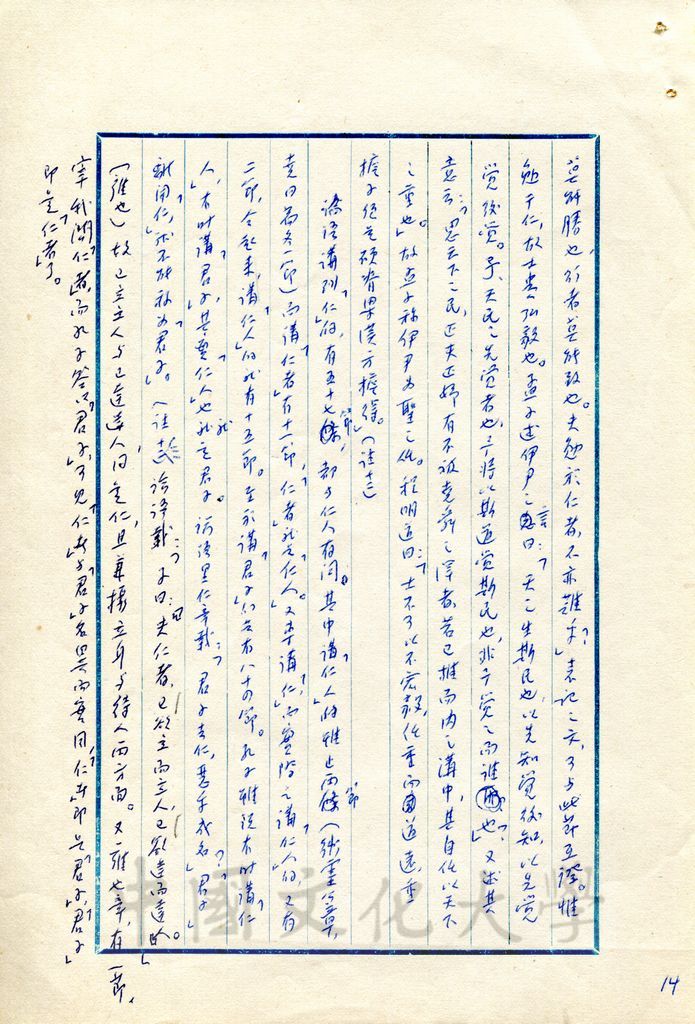 莫能勝也,行者莫能致也。夫勉於仁者,不亦難乎?」表記之文,可與此節互證。惟
勉于仁,故士貴弘毅也。孟子述伊尹之言曰:「天之生斯民也,以先知覺後知,以先覺
覺後覺。予,天民之先覺者也,予將以斯道覺斯民也,非予覺之而誰也?」又述其
意云:「思天下之民,匹夫匹婦有不被堯舜之澤者,若己推而內之溝中,其自任以天下
之重也。」故孟子稱伊尹為聖之任。程明道曰:「士不可以不弘毅,任重而道遠,重
擔子須是硬脊梁漢方擔得。」(註十二)
論語講到「仁」的,有五十七節,都與仁人有關。其中講「仁人」的雖止兩節(衛靈公章,
堯曰篇各一節)而講「仁者」有十一節,仁者就是仁人。又單講「仁」而實際已講「仁人」的,又有
二節,合起來,講「仁人」的就有十五節。至於講「君子」的共有八十四節。孔子雖說有時講仁
人,有時講君子,其實「仁人」也就是「君子」。論語里仁章載:「君子去仁,惡乎成名?」「君子」
離開「仁」,就不能稱為「君子」。(註 )論語載:「子曰:夫仁者,己欲立而立人,己欲達而達人。」
(雍也)故己立立人與己達達人同是仁,且兼攝立身與待人兩方面。又雍也章,有一節,
宰我問「仁者」,而孔子答以「君子」,可見「仁者」與「君子」名異而實同,「仁者」即是「君子」,「君子」
即是「仁者」了。
14
中國文化大學